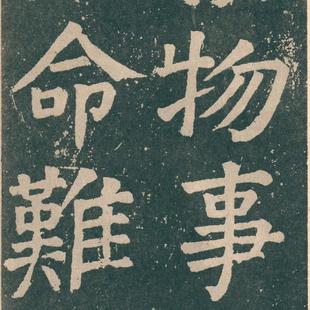 物事
命難